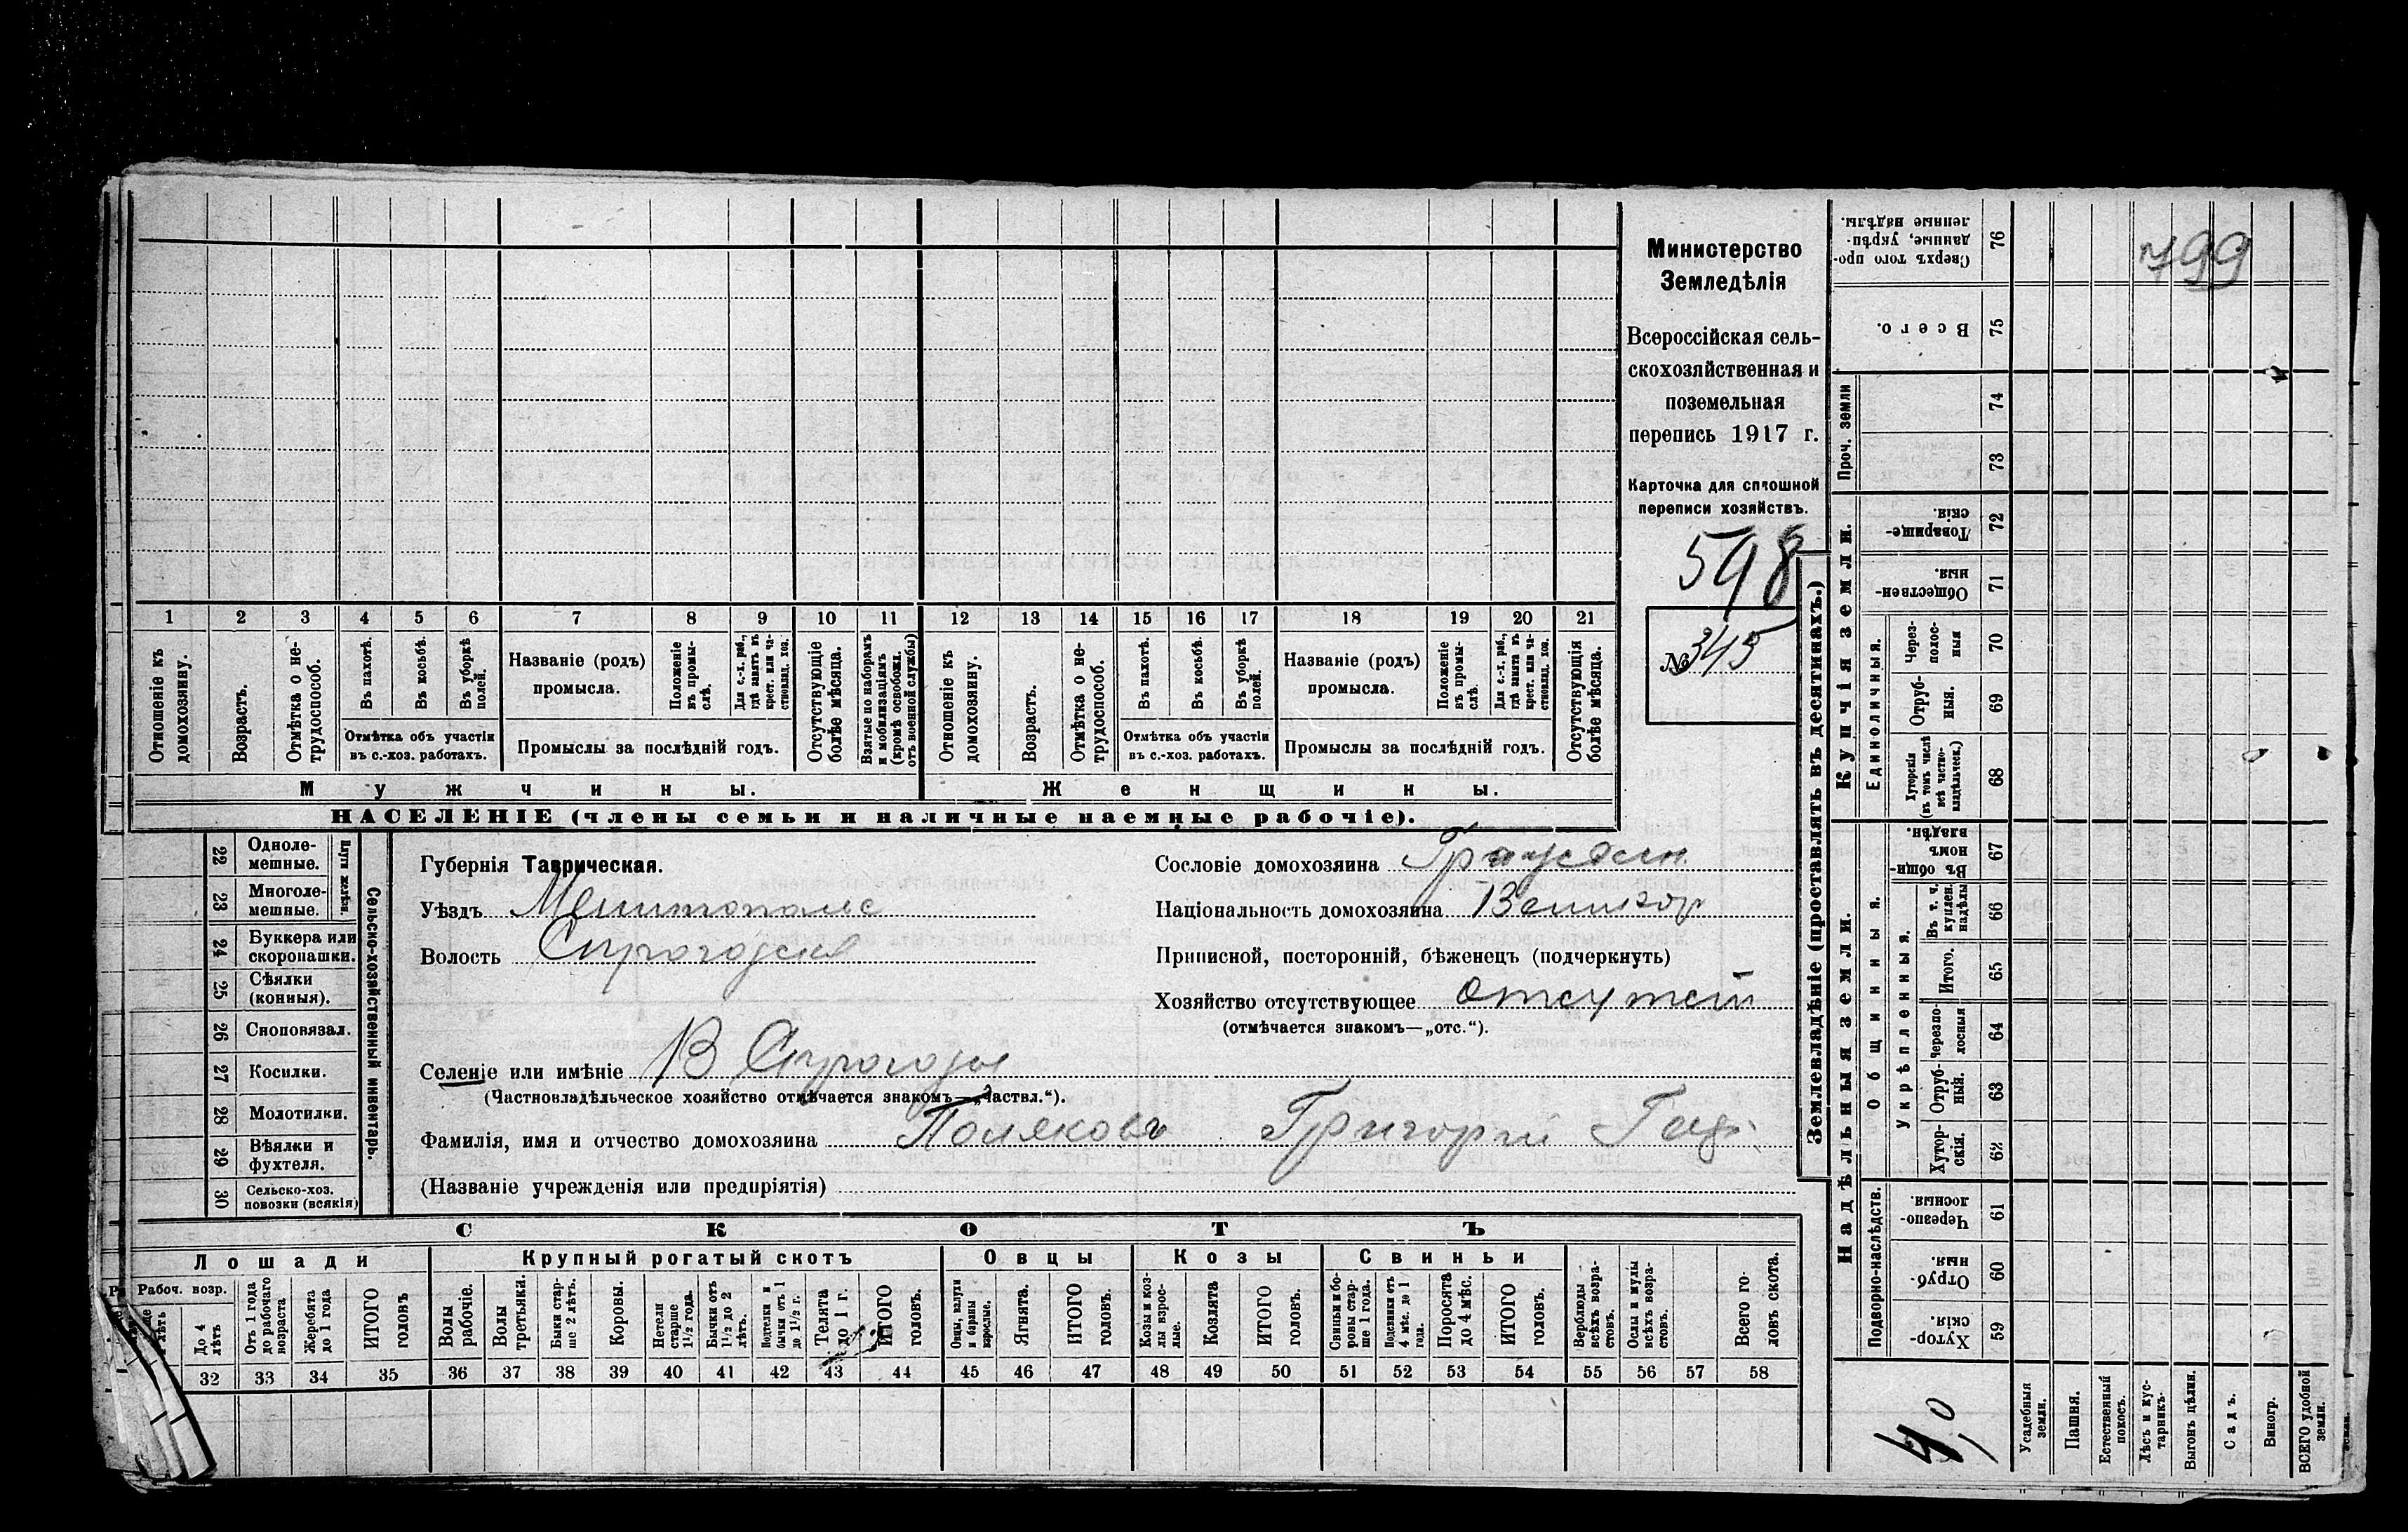 Министерство
Земледѣлія
Всероссійская сель-
скохозяйственная и
поземельная
перепись 1917 г.
Карточка для сплошной
переписи хозяйствъ.
598
№ 345
799
1 2 3 4 5 6 7 8 9 10 11 12 13 14 15 16 17 18 19 20 21
Отношеніе къ домохозяину.
Возрастъ.
Отмѣтка о не-трудоспособ.
Въ пахотѣ.
Въ косьбѣ.
Въ уборкѣ полей.
Отмѣтка объ участіи
въ с.-хоз. работахъ.
Названіе (родъ)
промысла.
Положеніе въ промы-слѣ.
Для с.-х. раб., гдѣ занятъ въ крест. или ча-стновлад. хоз.
Промыслы за послѣдній годъ.
Отсутствующіе болѣе мѣсяца.
Взятые по наборамъ и мобилизаціямъ (кромѣ освобожд. отъ военной службы)
Отношеніе къ домохозяину.
Возрастъ.
Отмѣтка о не-трудоспособ.
Въ пахотѣ.
Въ косьбѣ.
Въ уборкѣ полей.
Отмѣтка объ участіи
въ с.-хоз. работахъ.
Названіе (родъ)
промысла.
Положеніе въ промы-слѣ.
Для с.-х. раб., гдѣ занята въ крест. или ча-стновлад. хоз.
Промыслы за послѣдній годъ.
Отсутствующія болѣе мѣсяца.
Мужчины. Женщины.
НАСЕЛЕНІЕ (члены семьи и наличные наемные рабочіе).
Сельско-хозяйственный инвентарь.
Плуги желѣзн.
22 Одноле-мешные.
23 Многоле-мешные.
24 Буккера или скоропашки.
25 Сѣялки (конныя).
26 Сноповязал.
27 Косилки.
28 Молотилки.
29 Вѣялки и фухтеля.
30 Сельско-хоз. повозки (всякія)
Губернія Таврическая.
Уѣздъ
Волость
Селеніе или имѣніе В
(Частновладѣльческое хозяйство отмѣчается знакомъ—„частвл.“).
Фамилія, имя и отчество домохозяина Поляковъ Григорій
(Названіе учрежденія или предпріятія)
Сословіе домохозяина
Національность домохозяина
Приписной, посторонній, бѣженецъ (подчеркнуть)
Хозяйство отсутствующее
(отмѣчается знакомъ—„отс.“).
СКОТЪ
Лошади Крупный рогатый скотъ Овцы Козы Свиньи
Рабоч. возр.
До 4 лѣтъ
Отъ 1 года до рабочаго возраста
Жеребята до 1 года
ИТОГО головъ
Волы рабочіе.
Волы третьяки.
Быки стар-ше 2 лѣтъ.
Коровы.
Нетели старше 1½ года.
Бычки отъ 1½ до 2 лѣтъ.
Подтелки и бычки отъ 1 до 1½ г.
Телята до 1 г.
ИТОГО головъ.
Овцы, валухи и бараны взрослые.
Ягнята.
ИТОГО головъ.
Козы и коз-лы взрос-лые.
Козлята
ИТОГО головъ.
Свиньи и бо-ровы стар-ше 1 года.
Подсвинки отъ 4 мѣс. до 1 года.
Поросята до 4 мѣс.
ИТОГО головъ.
Верблюды всѣхъ возра-стовъ.
Ослы и мулы всѣхъ возра-стовъ.
Всего го-ловъ скота.
32 33 34 35 36 37 38 39 40 41 42 43 44 45 46 47 48 49 50 51 52 53 54 55 56 57 58
Землевладѣніе (проставлять въ десятинахъ.)
Надѣльныя земли. Купчія земли. Проч. земли
Подворно-наслѣдств. Общинныя. Единоличныя.
Укрѣпленныя.
59 Хутор-скія
60 Отруб-ныя
61 Черезпо-лосныя.
62 Хутор-скія.
63 Отруб-ныя.
64 Черезпо-лосныя
65 Итого.
66 Въ т. ч. куплен. надѣлы
67 Въ общин-номъ владѣн.
68 Хуторскія (въ томъ числѣ всѣ частно-владѣльческ.)
69 Отруб-ныя.
70 Через-полос-ныя
71 Обществен-ныя.
72 Товарище-скія.
73
74
75 Всего.
76 Сверхъ того про-данные, укрѣп-ленные надѣлы.
Усадебныя земли.
Пашня.
Естественный покосъ.
Лѣсъ и кус-тарникъ.
Выгонъ цѣлин.
Садъ.
Виногр.
ВСЕГО удобной земли.